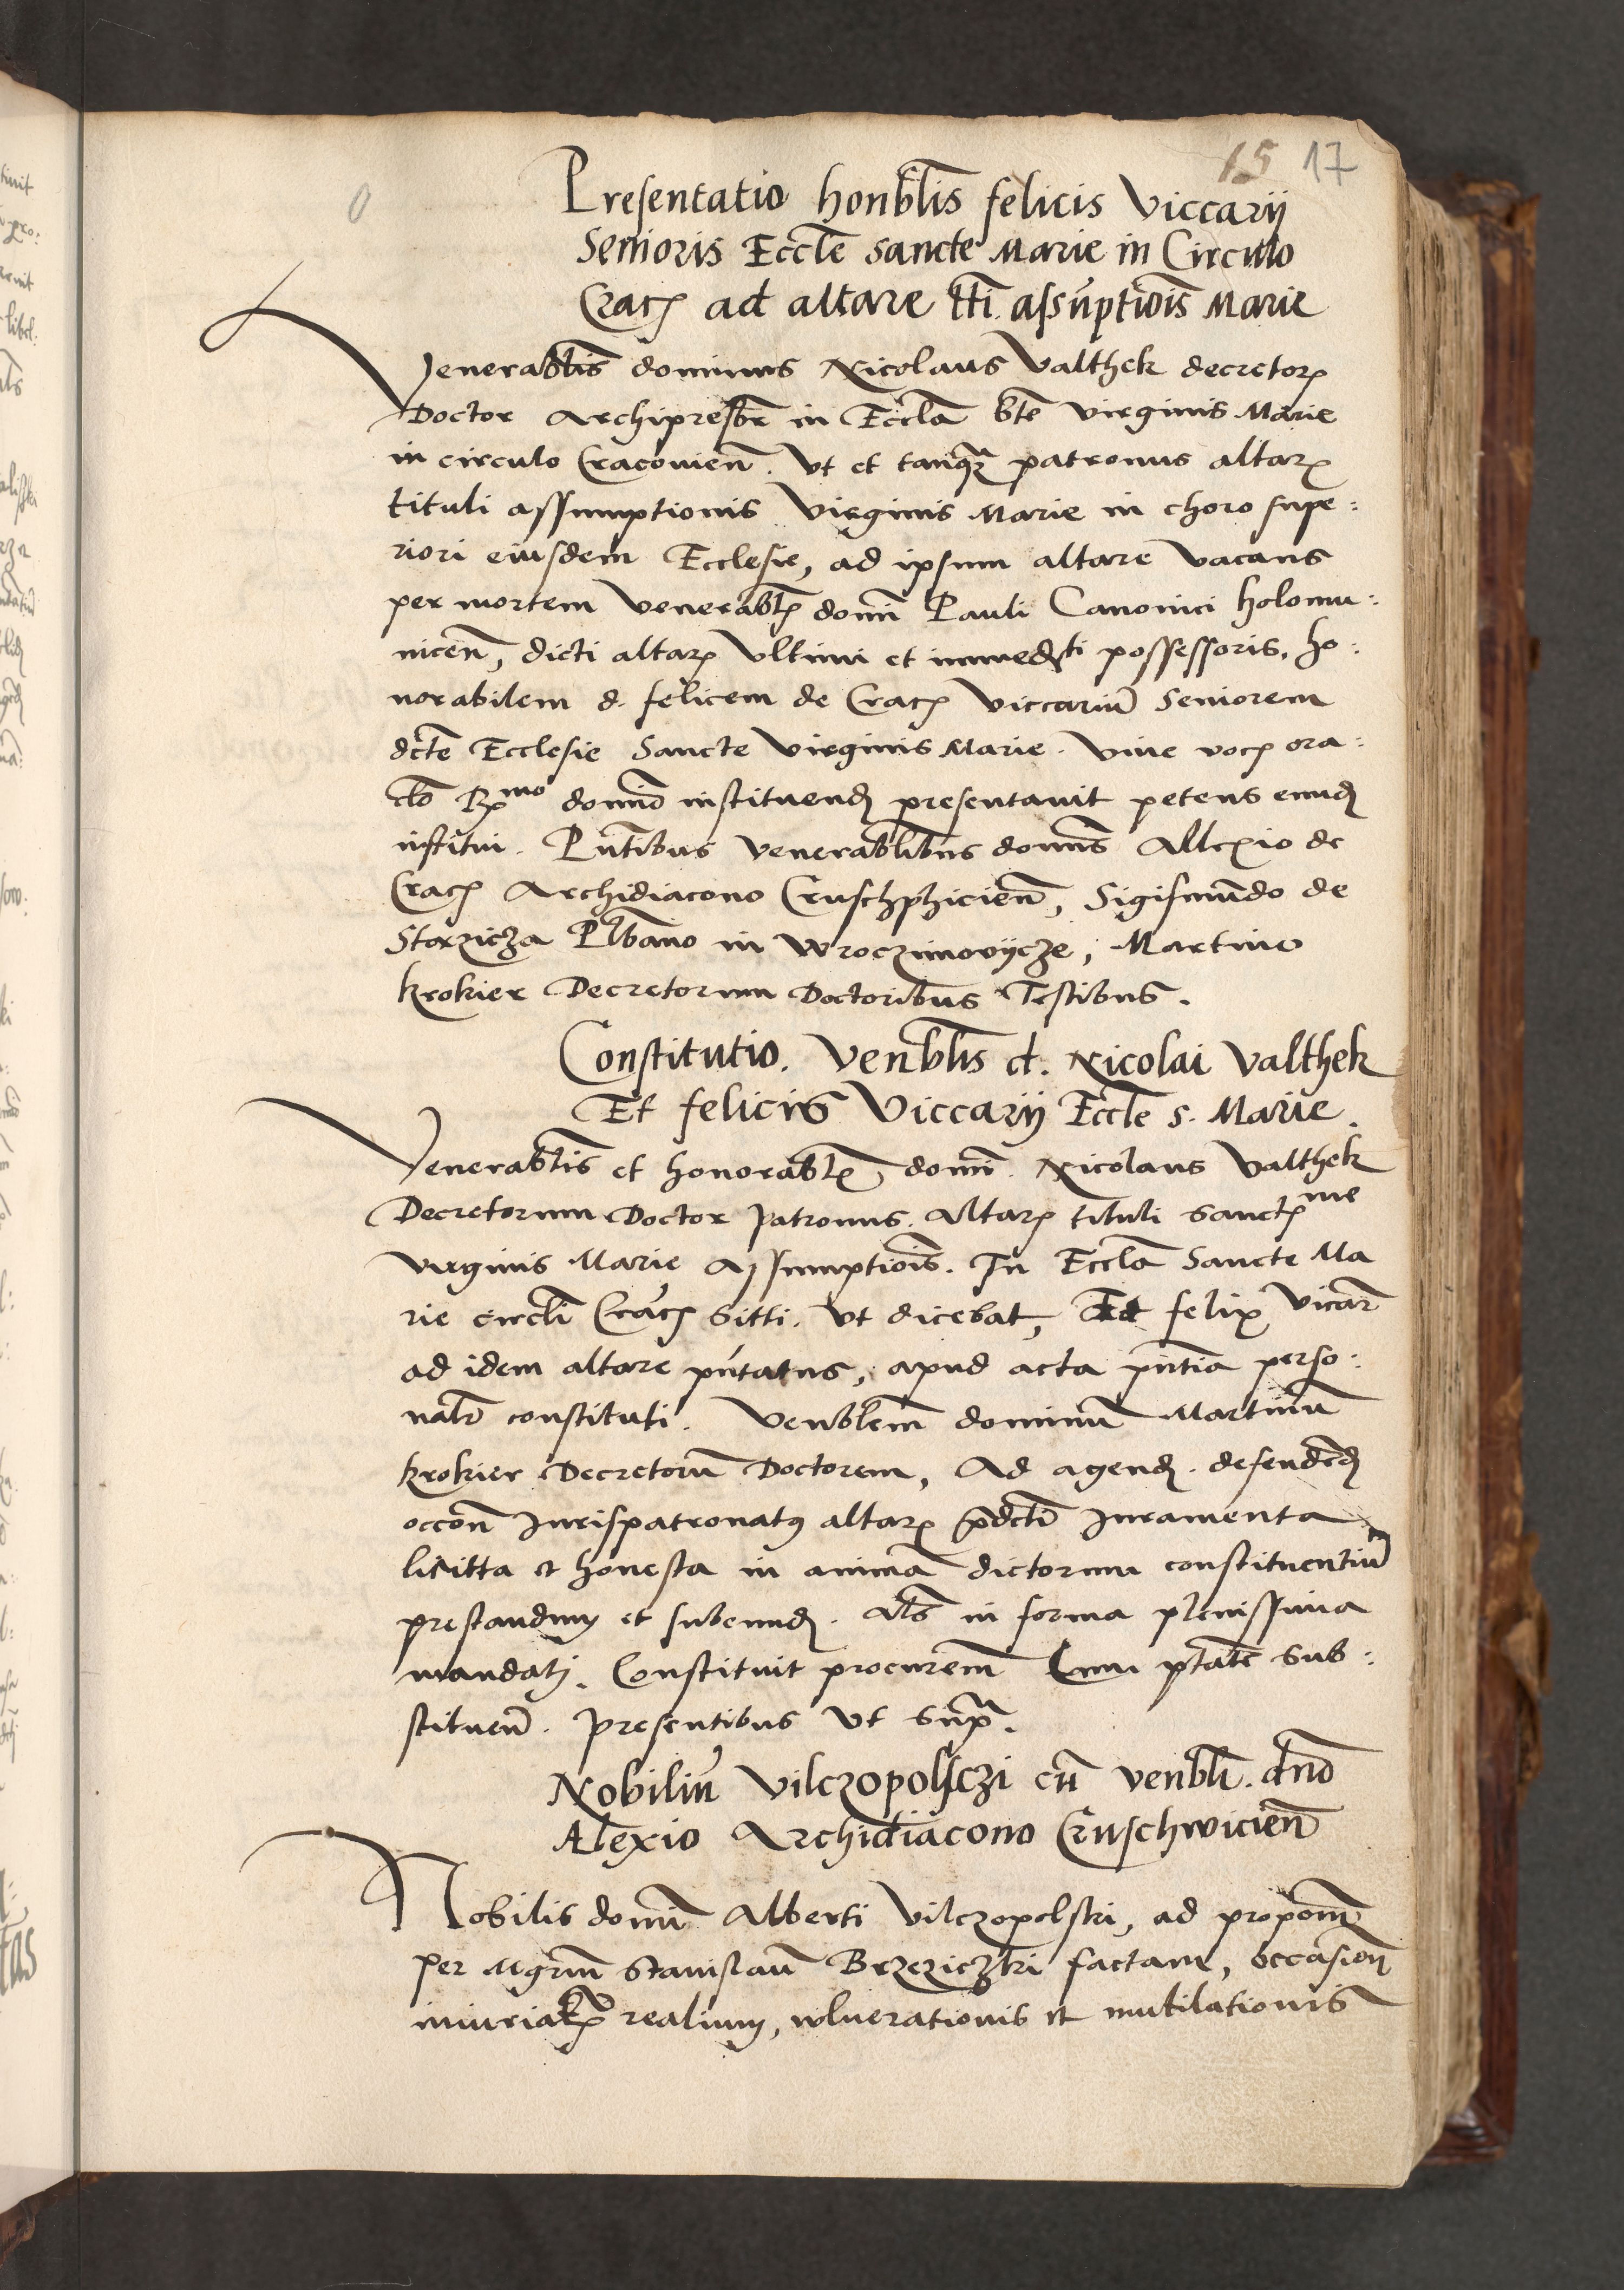 15 17
Presentatio honbłis felicis Viccarij
Senioris Eccłe sancte Marie in Circulo
Crac̨ ad altare tłi assu̅ptio̅is Marie
Venerabłis dominus Nicolaus Valthek decretor̨
Doctor Archipresb̅r in Eccła bte̅ virginis Marie
in circulo Cracouien̅. Vt et tanq̨ᵃ patronus altar̨
tituli assumptionis Virginis Marie in choro supe:
riori eiusdem Ecclesie, ad ipsum altare Vacans
per mortem Venerabł̨ domi̅ Pauli Canonici holomu:
nicen̅, dicti altar̨ Vltimi et immed̨ti possessoris, ho:
norabilem d. felicem de Crac̨ Viccariu̅ Seniorem
dcte̅ Ecclesie Sancte Virginis Marie. Viue voc̨ ora:
cło R̨ᵐᵒ domi̅o instituend̨ presentauit petens eund̨
institui. Pn̅tibus Venerabłibus domi̅s Allexio de
Crac̨ Archidiacono Cruschphicien̅, Sigismu̅do de
Starzicza Płbano in Wroczimovijcze, Martino
krokier Decretorum Doctoribus Testibus.
Constitutio. Venbłis d. Nicolai Valthek
Et felicis Viccarij Eccłe s. Marie.
Venerabłis et honorabł̨ domi̅. Nicolaus Valthek
Decretorum Doctor Patronus. Altar̨ tituli Sanct̨ᵐᵉ
Virginis Marie Assumptio̅is. In Eccła Sancte Ma
rie circłi Crac̨ Sitti. Vt dicebat, Et felix Vicar̅
ad idem altare pn̅tatus, apud acta pn̅tia perso:
nalr̅ constituti. Venbłem dominu̅ Martinu̅
krokier Decretoru̅ Doctorem, Ad agend̨. defendend̨
occon̅ Jurispatronatus altar̨ p̅dcti̅ Juramenta
licitta et honesta in anima̅ dictorum constituentiu̅
prestandum et subeund̨. Als̅ in forma plenissima
mandatj. Constituit procurem̅ Cum pt̅ate̅ sub:
stituen̅. Presentibus Vt Supᵃ.
Nobiliu̅ Vilczopolsczi cu̅ venbłi. dn̅o
Alexio Archidiacono Cruschwicien̅
Nobilis domi̅ Alberti Vilczopolski, ad propo̅m̅
per Mgrm̅ Stanislau̅ Brzezicz̅ki factam, occasien̅
iniuriar̨ realium, vlnerationis et mutilationis